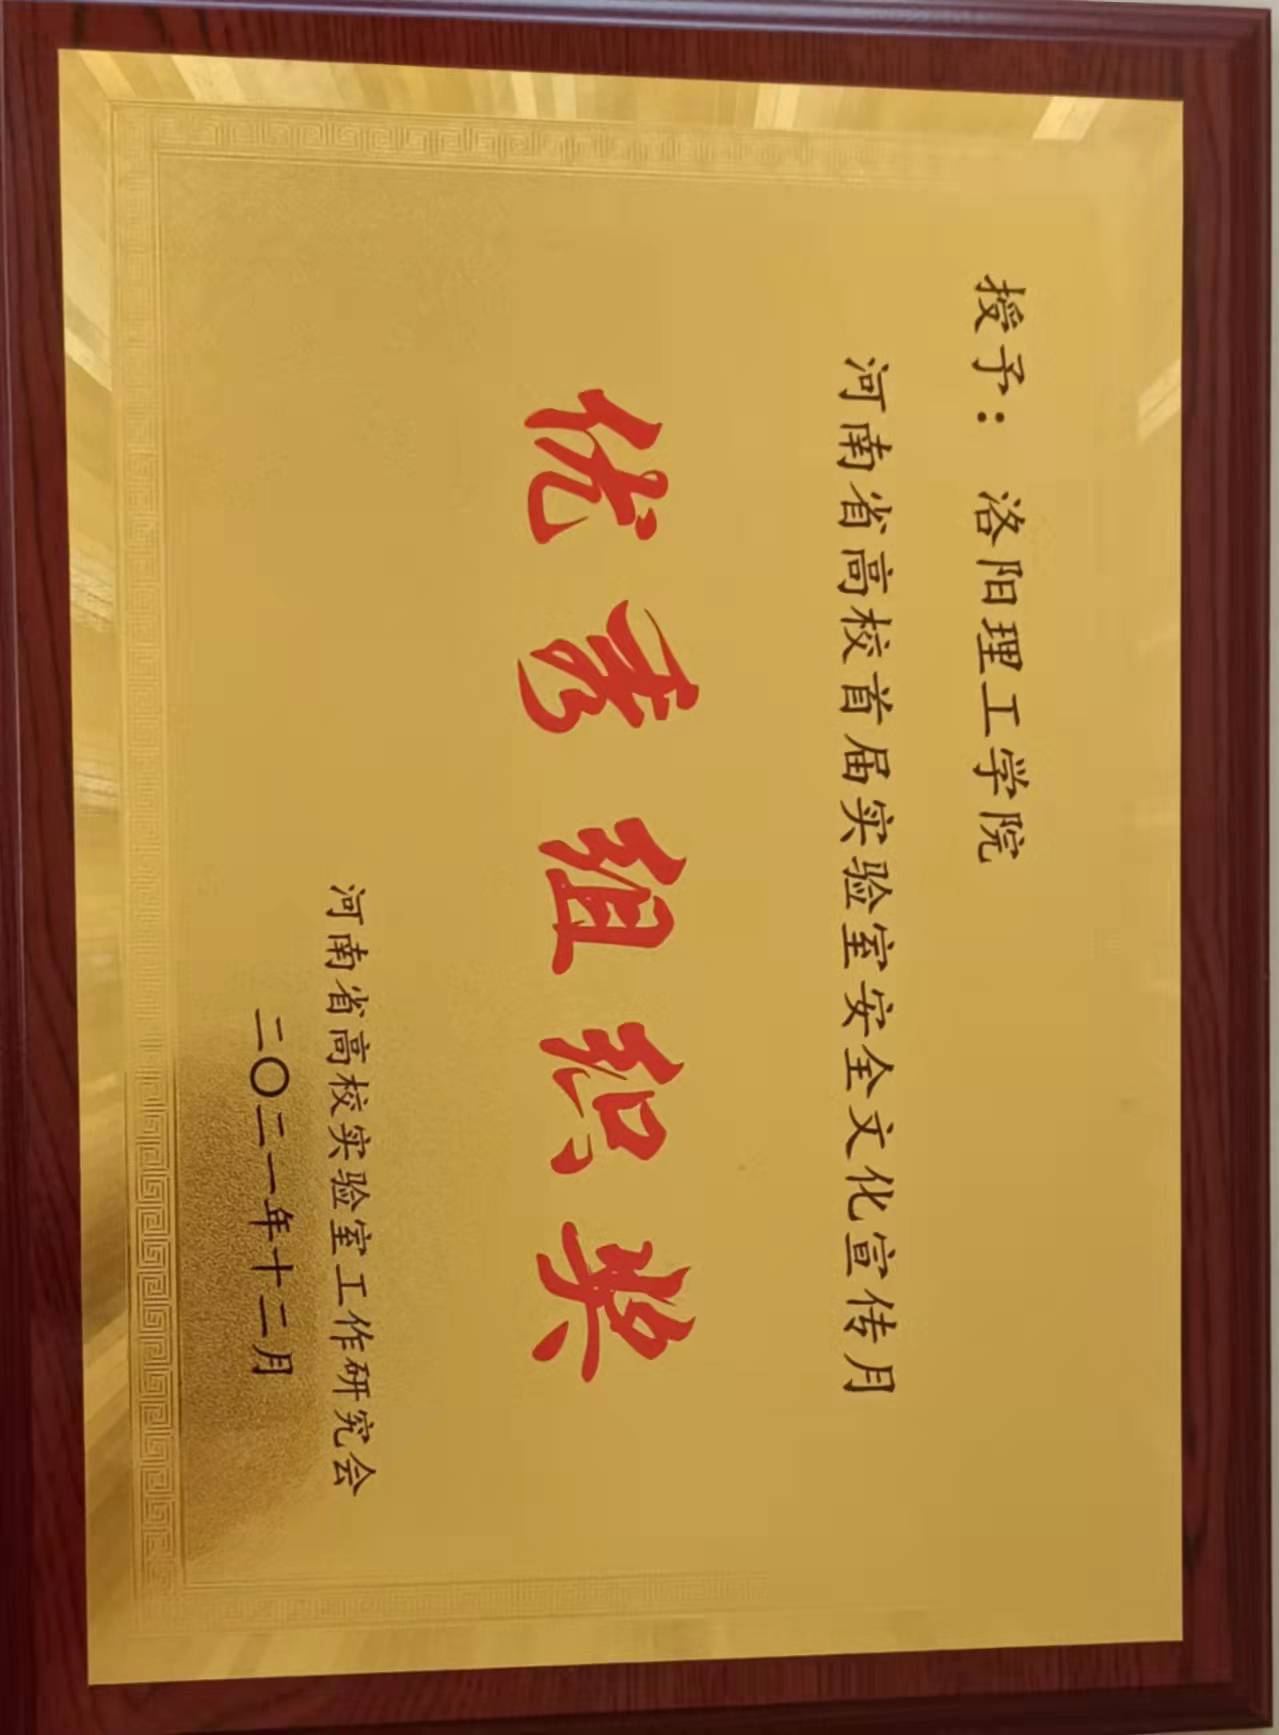 授予：洛阳理工学院
河南省高校首届实验室安全文化宣传月
优秀组织奖
河南省高校实验室工作研究会
二〇二一年十二月